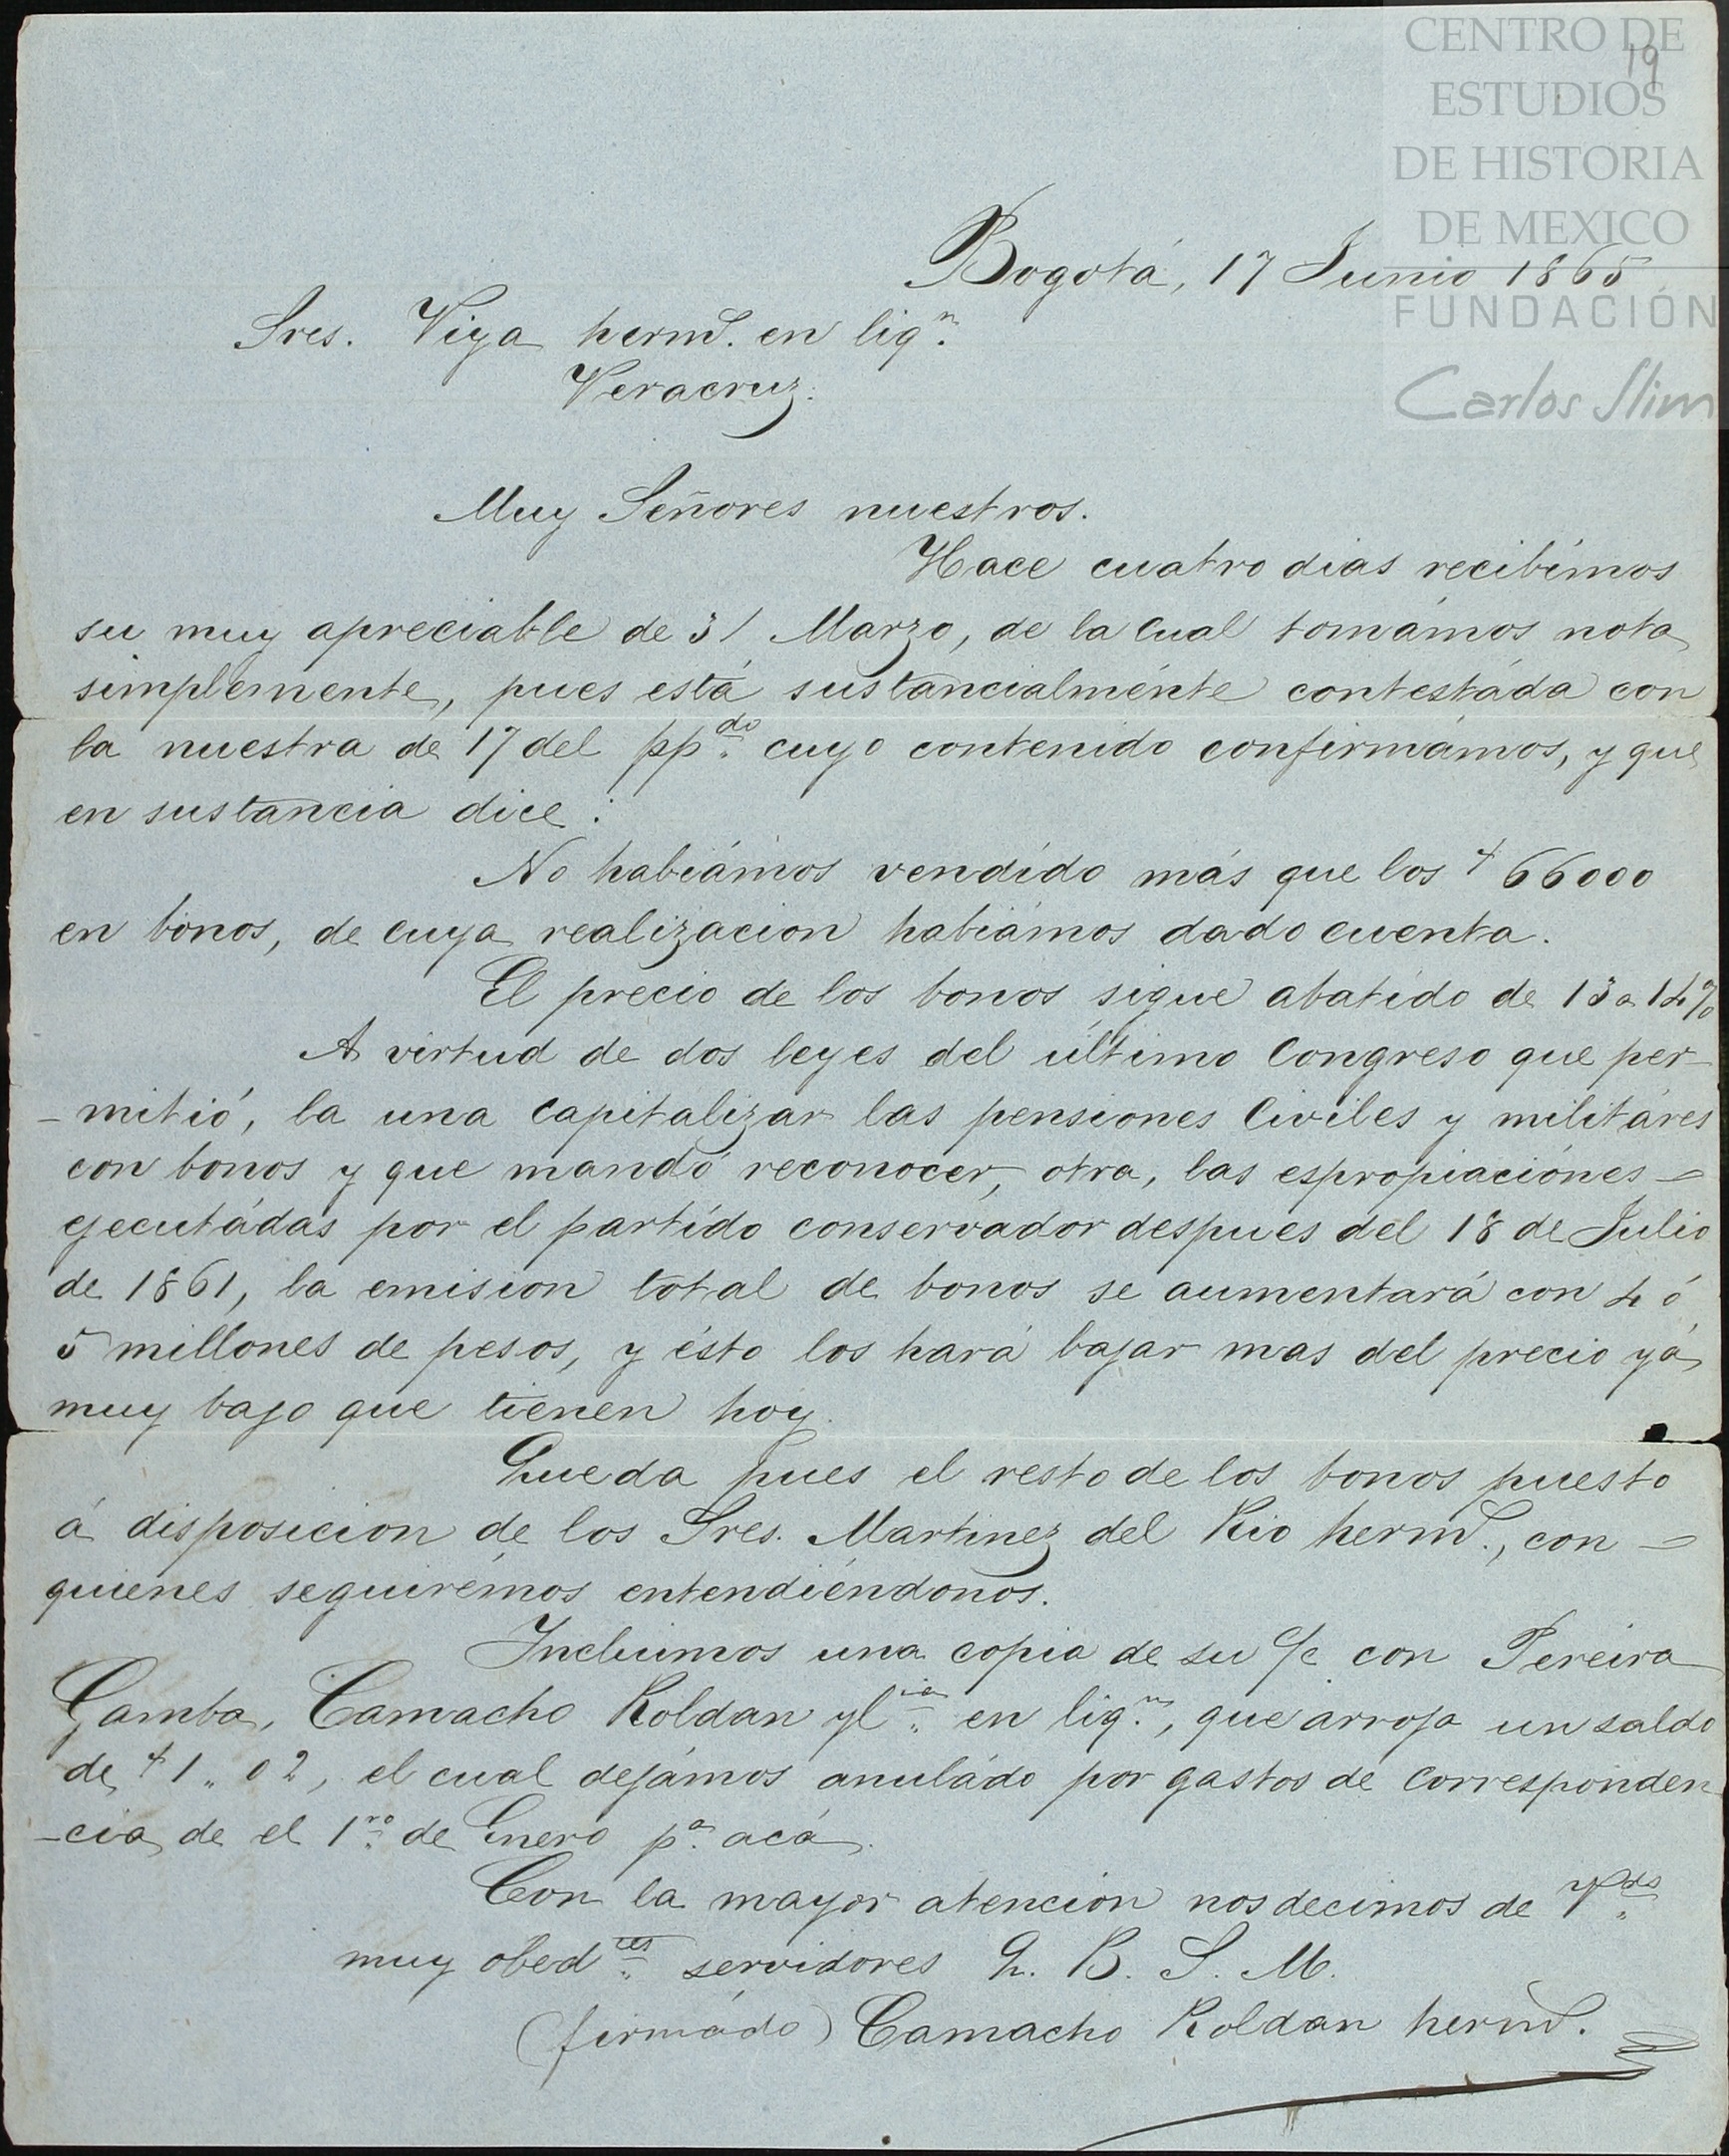 CENTRO DE
ESTUDIOS
DE HISTORIA
DE MEXICO
FUNDACIÓN
Carlos Slim
19
Bogotá, 17 Junio 1865
Sres. Viya herms. en liqn.
Veracruz.
Muy Señores nuestros.
Hace cuatro dias recibímos
su muy apreciable de 31 Marzo, de la cual tomámos nota
simplemente, pues está sustancialménte contestáda con
la nuestra de 17 del ppdo. cuyo contenido confirmámos, y que
en sustancia dice:
No habiámos vendído más que los $ 66000
en bonos, de cuya realizacion habiámos dado cuenta.
El precio de los bonos sigue abatído de 13 a 14%
A virtud de dos leyes del último Congreso que per-
-mitió, la una capitalizar las pensiones Civiles y militáres
con bonos y que mandó reconocer, otra, las espropiaciónes =
ejecutádas por el partído conservador despues del 18 de Julio
de 1861, la emision total de bonos se aumentará con 4 ó
5 millones de pesos, y ésto los hará bajar mas del precio yá
muy bajo que tienen hoy.
Queda pues el resto de los bonos puesto
á disposicion de los Sres. Martinez del Rio herms., con =
quienes seguirémos entendiéndonos.
Incluimos una copia de su c/c con Pereira
Gamba, Camacho Roldan y Cia. en liqn., que arroja un saldo
de $ 1.. 02, el cual dejámos anuládo por gastos de corresponden
-cia de el 1ro. de Enero pa. acá.
Con la mayor atencion nos decimos de Vds.
muy obedtes. servidores Q. B. S. M.
(firmádo) Camacho Roldan herms.